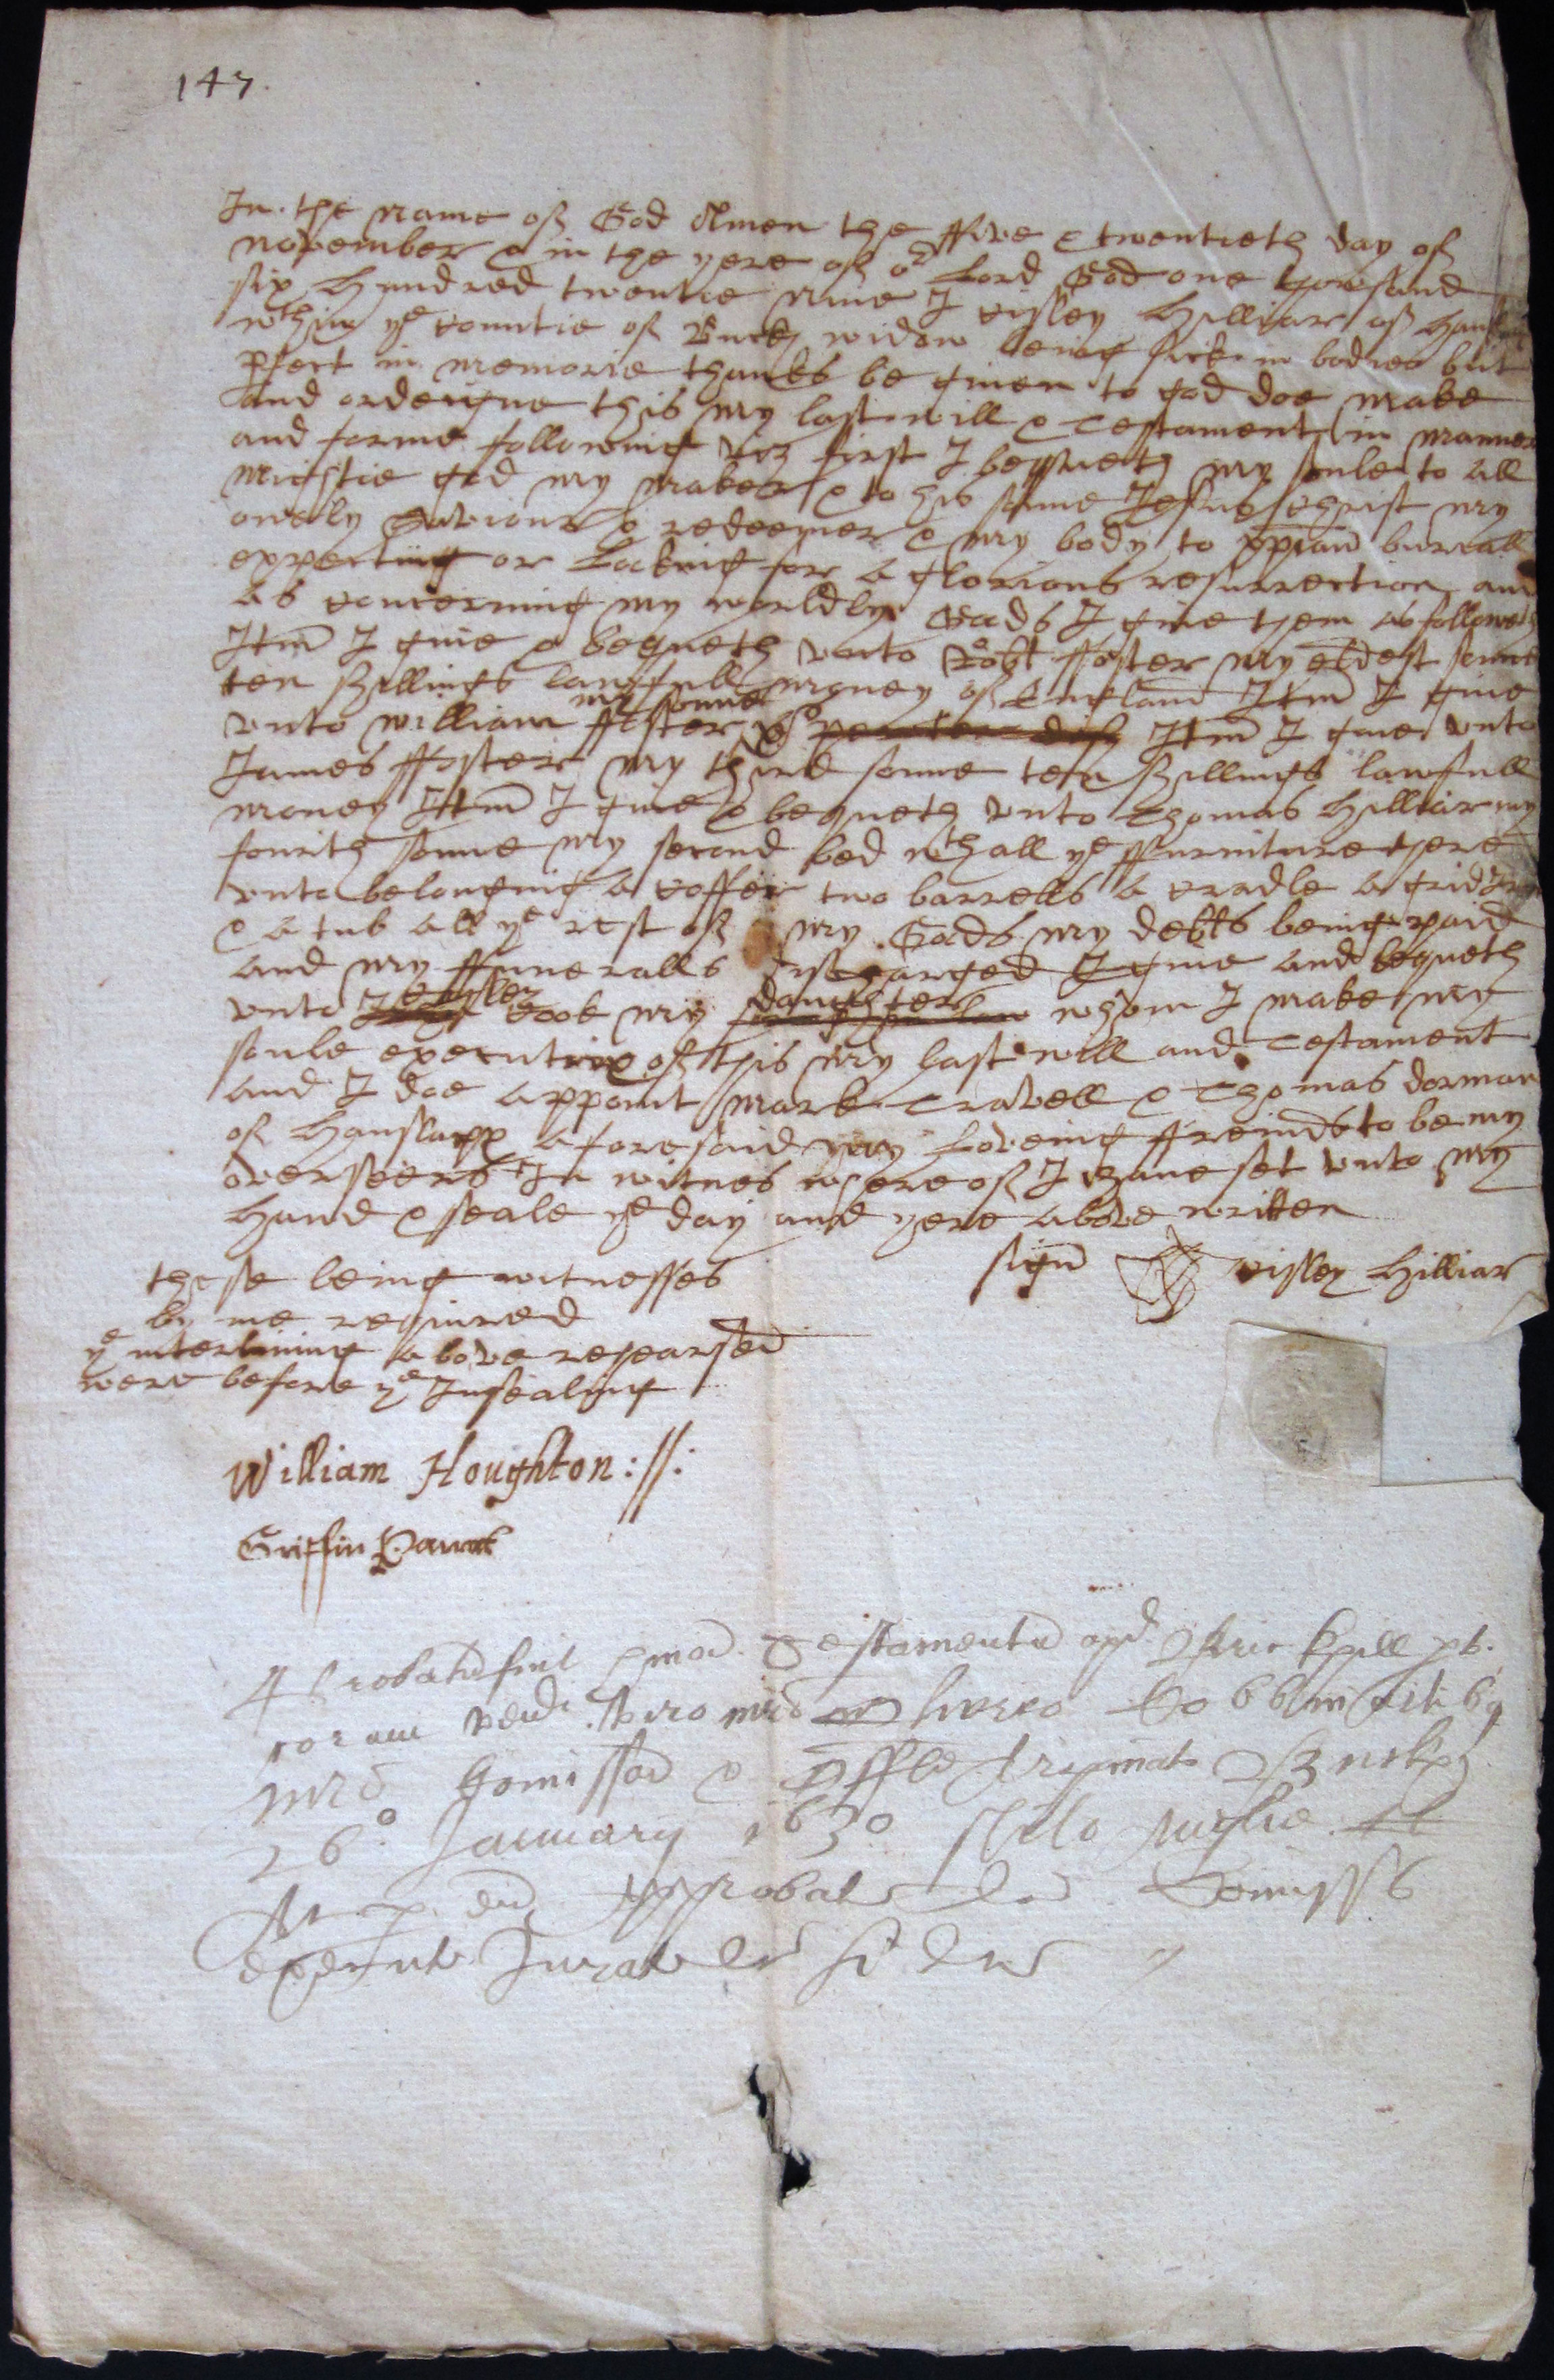 147.
In the name of God Amen the ffive & twentieth day of
november & in the yere of or Lord God one thowsand
six hundred twentie nine I Cisley Hilliar of Hanslapp
wthin ye Countie of Buck widow being sick in bodieo but
pfect in memorie thanks be given to god doe make
and ordeigne this my last will & Testament in manner
and forme following viz first I bequeth my soule to all
mightie god my maker & to his sonne Jesus Christ my
onely Saviour & redeemer & my body to xpian buriall
expecting or Looking for a glorious resurrection and
as concerning my worldly Goods I give them as followeth
Itm I give & bequeth unto Robt ffoster my eldest sonne
ten shillings lawfull money of England Itm I give
unto william my sonne ffoster xs Itm I give unto
James ffoster my third sonne ten shillings lawfull
money Itm I give & bequeth unto Thomas Hilliar my
fourth sonne my second bed wth all ye ffurniture there
unto belonging a coffer two barrells a cradle a gridIron
& a tub all ye rest of my Goods my debts being paid
and my ffuneralls discharged I give and bequeth
unto Cisley Cook my daughter whom I make my
soule executrix of this my last will and Testament
and I doe appoint mark Travell & Thomas dorman
of Hanslapp aforesaid my Loveing ffreinds to be my
overseers In witnes whereof I have set unto my
hand & seale ye day and yere above written
sign Cisley Hilliar
these being witnesses
by me required
ye interlining above rehearsed
were before ye Insealing
William Houghton
Griffin
Probatu fuit Testamentu apd
coram vend viro mro
mro Comissar &
26o January 1630 stilo Anglie
Ac p approbat
execut Jurat